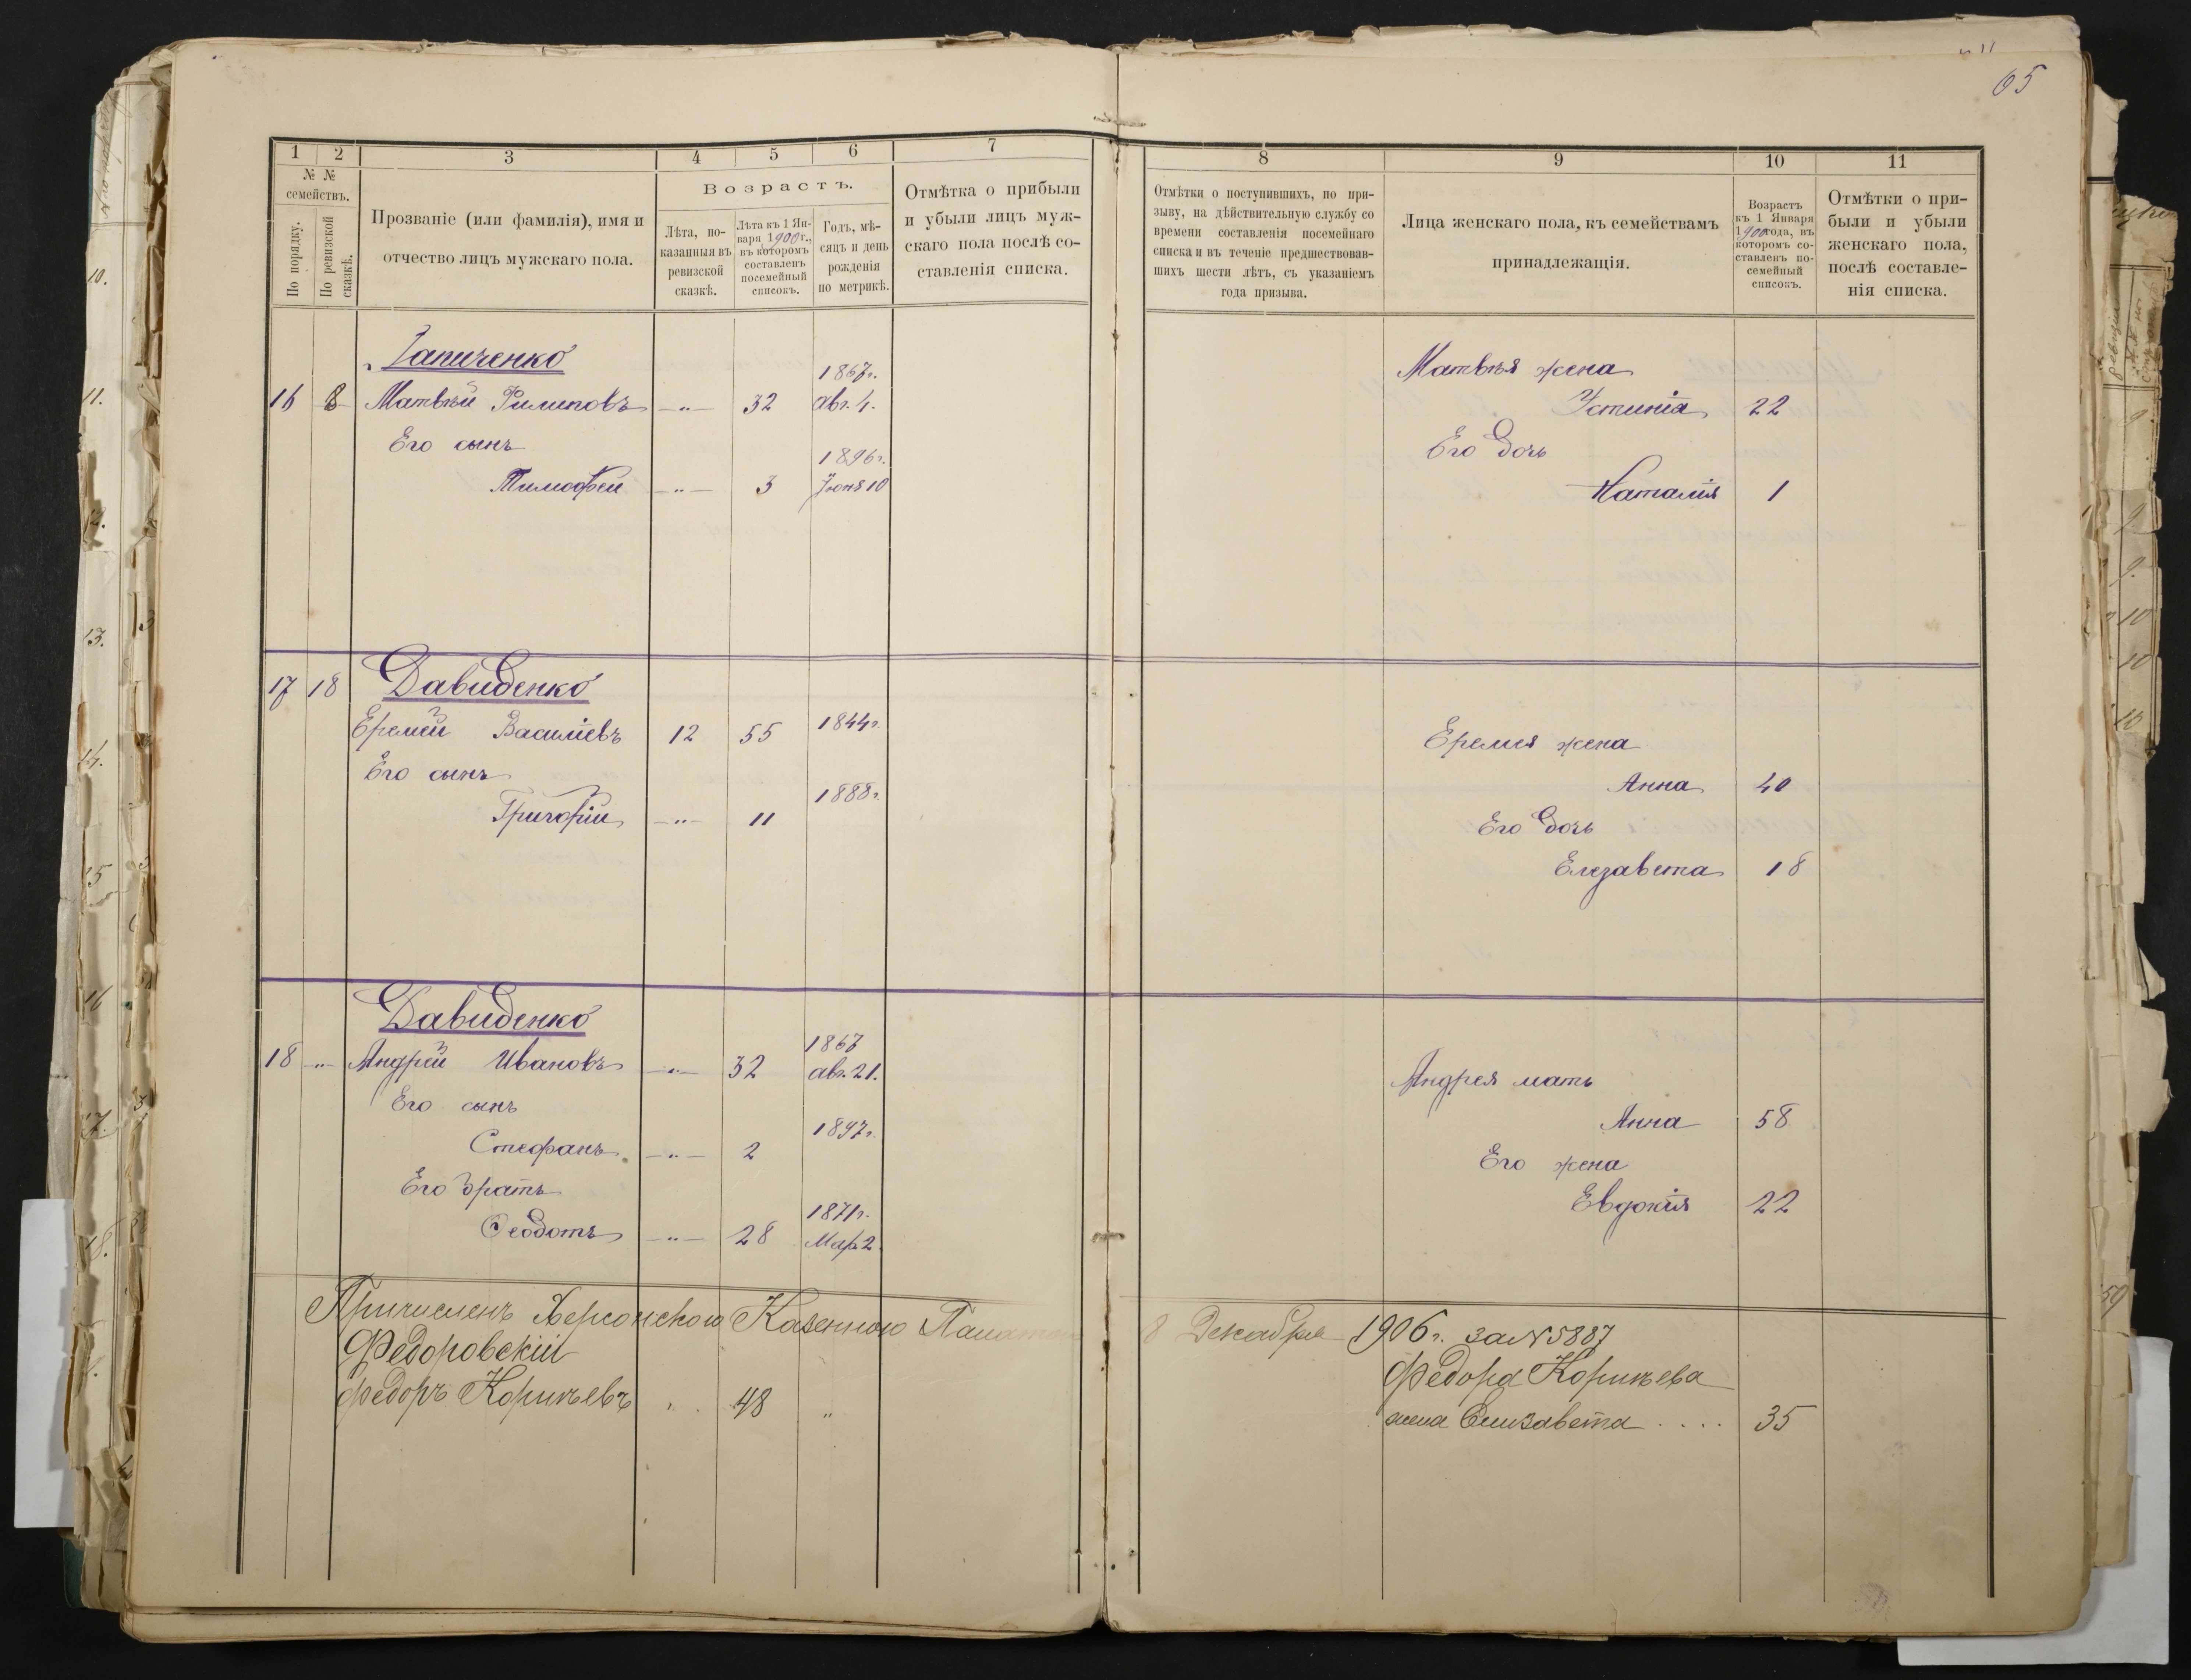 65
1 2 3 4 5 6 7 8 9 10 11
№ № семействъ.
По порядку.
По ревизской сказкѣ.
Прозваніе (или фамилія), имя и
отчество лицъ мужскаго пола.
Возрастъ.
Лѣта, по-
казанныя въ
ревизской
сказкѣ.
Лѣта къ 1 Ян-
варя 1900 г.,
въ которомъ
составленъ
посемейный
списокъ.
Годъ, мѣ-
сяцъ и день
рожденія
по метрикѣ.
Отмѣтка о прибыли
и убыли лицъ муж-
скаго пола послѣ со-
ставленія списка.
Отмѣтки о поступившихъ, по при-
зыву, на дѣйствительную службу со
времени составленія посемейнаго
списка и въ теченіе предшествовав-
шихъ шести лѣтъ, съ указаніемъ
года призыва.
Лица женскаго пола, къ семействамъ
принадлежащія.
Возрастъ
къ 1 Января
1900 года, въ
которомъ со-
ставленъ по-
семейный
списокъ.
Отмѣтки о при-
были и убыли
женскаго пола,
послѣ составле-
нія списка.
1867г.
Матвѣя жена
16 8 Матвѣй Филиповъ —"— 32 авг. 4.
Устинія 22
Его сынъ
1896г.
Его дочь
Тимофей —"— 3 Іюня 10
Наталія 1
17 18 Давиденко
Еремей Василіевъ 12 55 1844г.
Еремея жена
Его сынъ
Анна 40
1888г.
Григорій —"— 11
Его дочь
Елезавета 18
Давиденко
1867
18 —"— Андрей Ивановъ —"— 32 авг. 21.
Андрея мать
Его сынъ
Анна 58
1897г.
Стефанъ —"— 2
Его жена
Его братъ
Евдокія 22
1871г.
Ѳеодотъ —"— 28 Мар. 2.
Причисленъ Херсонскою Казенною Палатою 8 Декабря 1906г. за № 5887
Федоровскій
Федора Корнѣева
Федоръ Корнѣевъ " 48 "
жена Елизавета .... 35